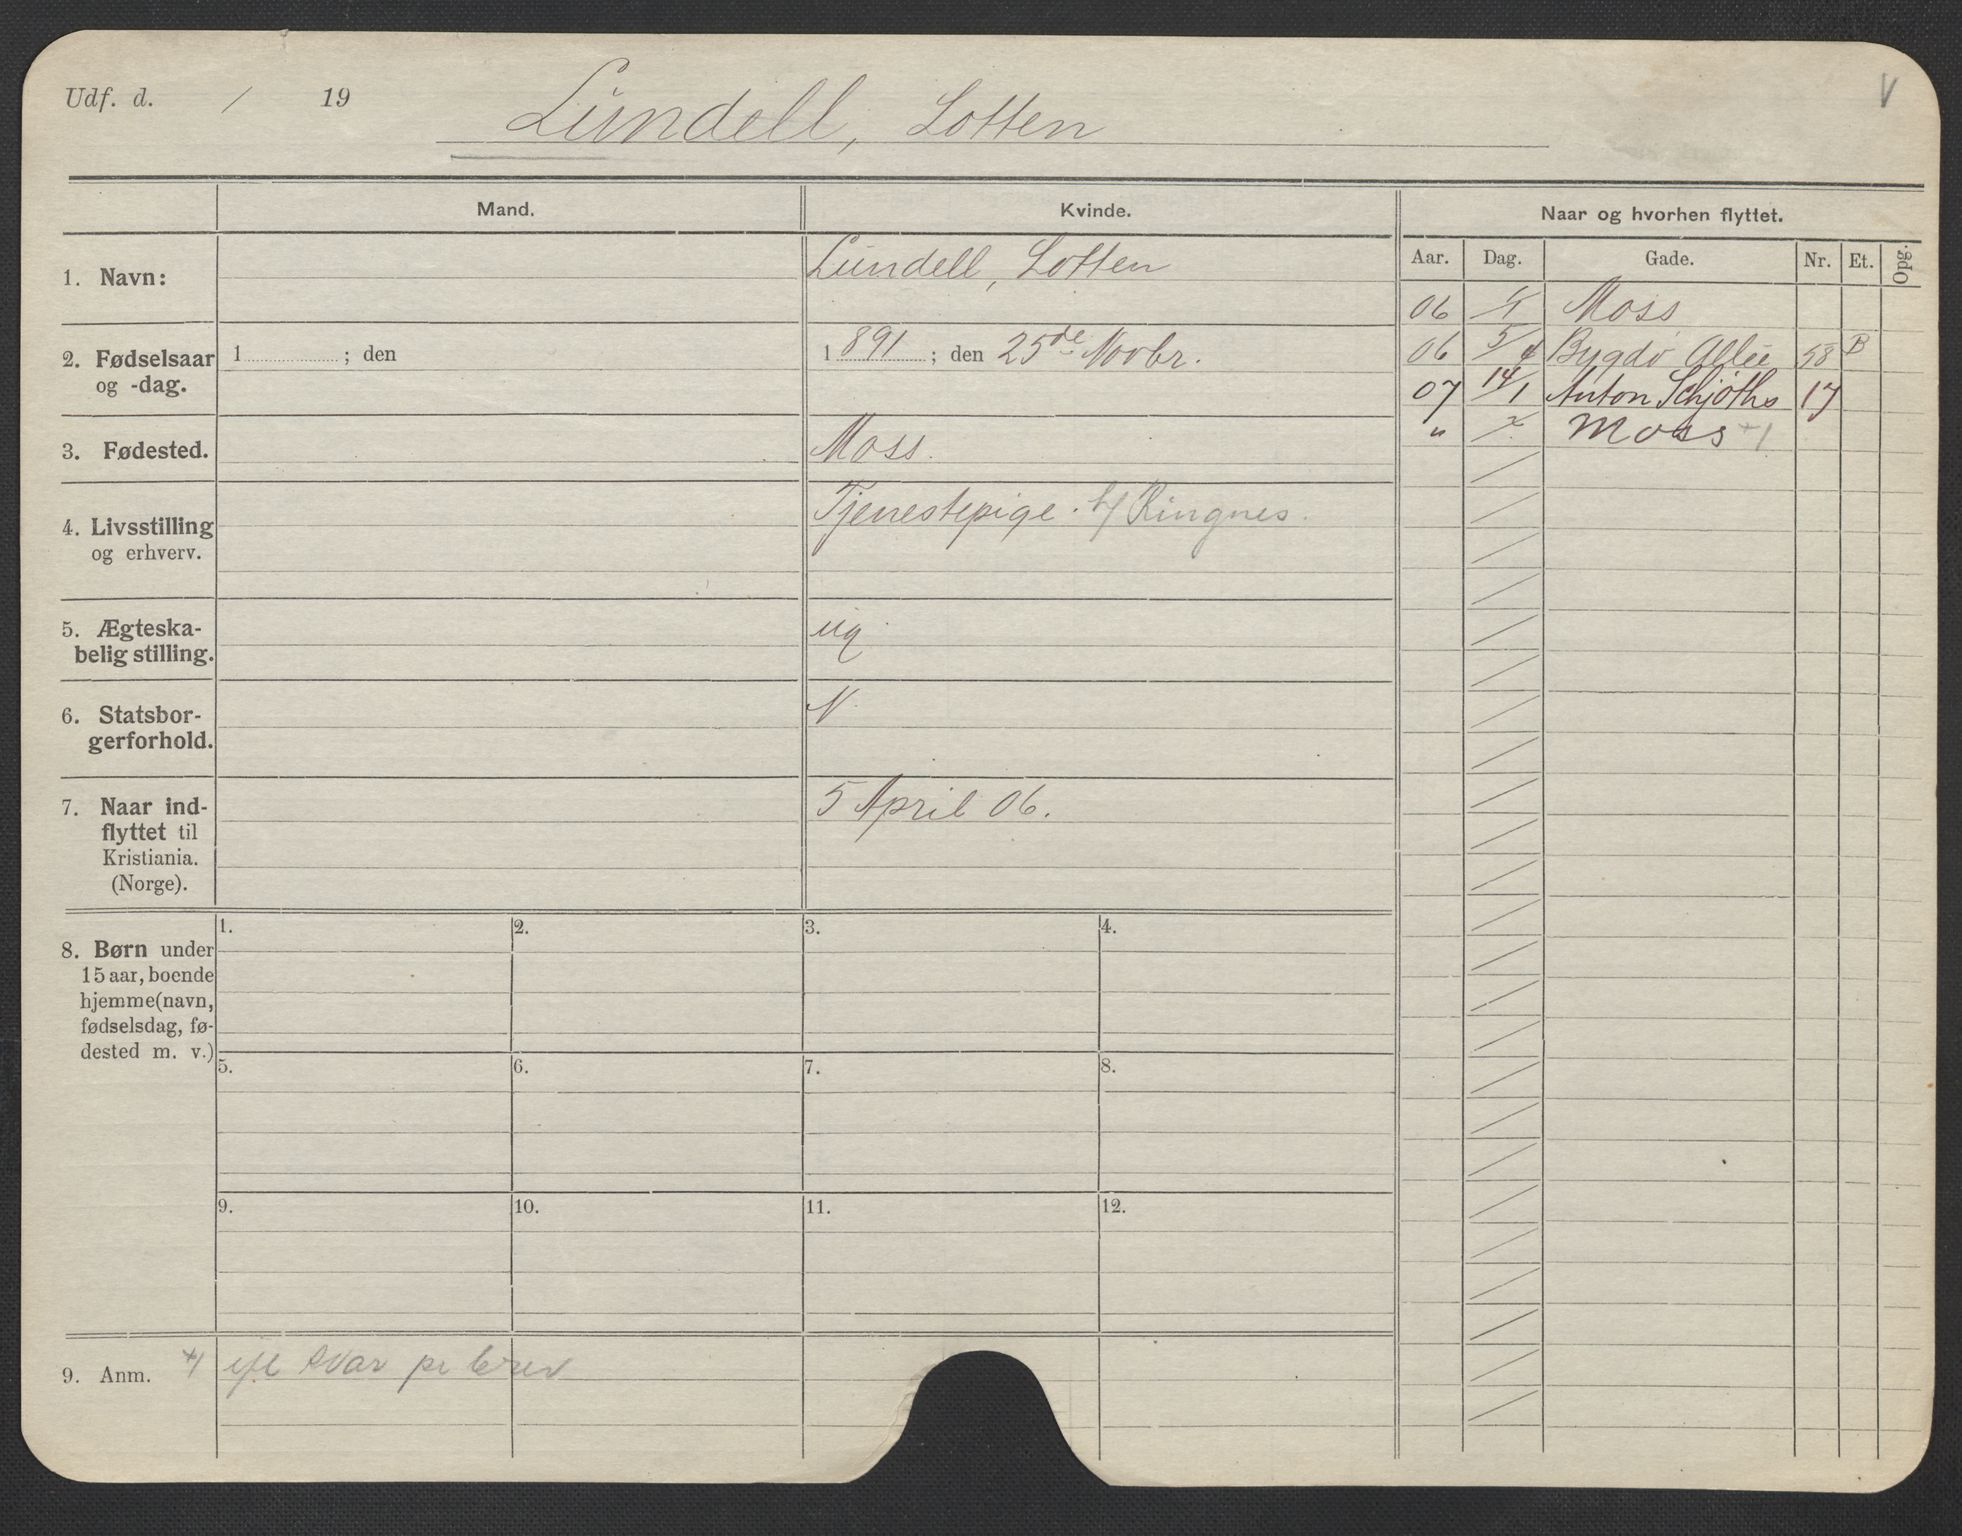 Udf. d. / 19
Lundell, Lotten
V
Mand.
Kvinde.
Naar og hvorhen flyttet.
Aar. Dag. Gade. Nr. Et. Opg.
1. Navn:
Lundell, Lotten
06 Moss
2. Fødselsaar
og -dag.
1 ; den
1891 ; den 25de Novbr.
06 5/4 Bygdø Allée 58 B
07 14/1 Anton Schjøths 17
" Moss +1
3. Fødested.
Moss.
4. Livsstilling
og erhverv.
Tjenestepige. h/ Ringnes.
5. Ægteska-
belig stilling.
ug
6. Statsbor-
gerforhold.
N.
7. Naar ind-
flyttet til
Kristiania.
(Norge).
5 April 06.
8. Børn under
15 aar, boende
hjemme(navn,
fødselsdag, fø-
dested m. v.)
1. 2. 3. 4.
5. 6. 7. 8.
9. 10. 11. 12.
9. Anm. +1 eft svar pr brev